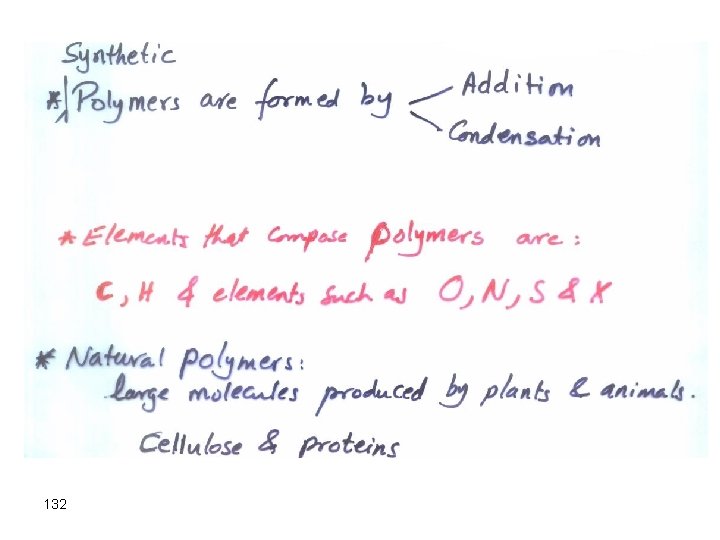 Synthetic
* Polymers are formed by Addition
Condensation
* Elements that compose polymers are:
C, H & elements such as O, N, S & X
* Natural polymers:
large molecules produced by plants & animals.
Cellulose & proteins
132